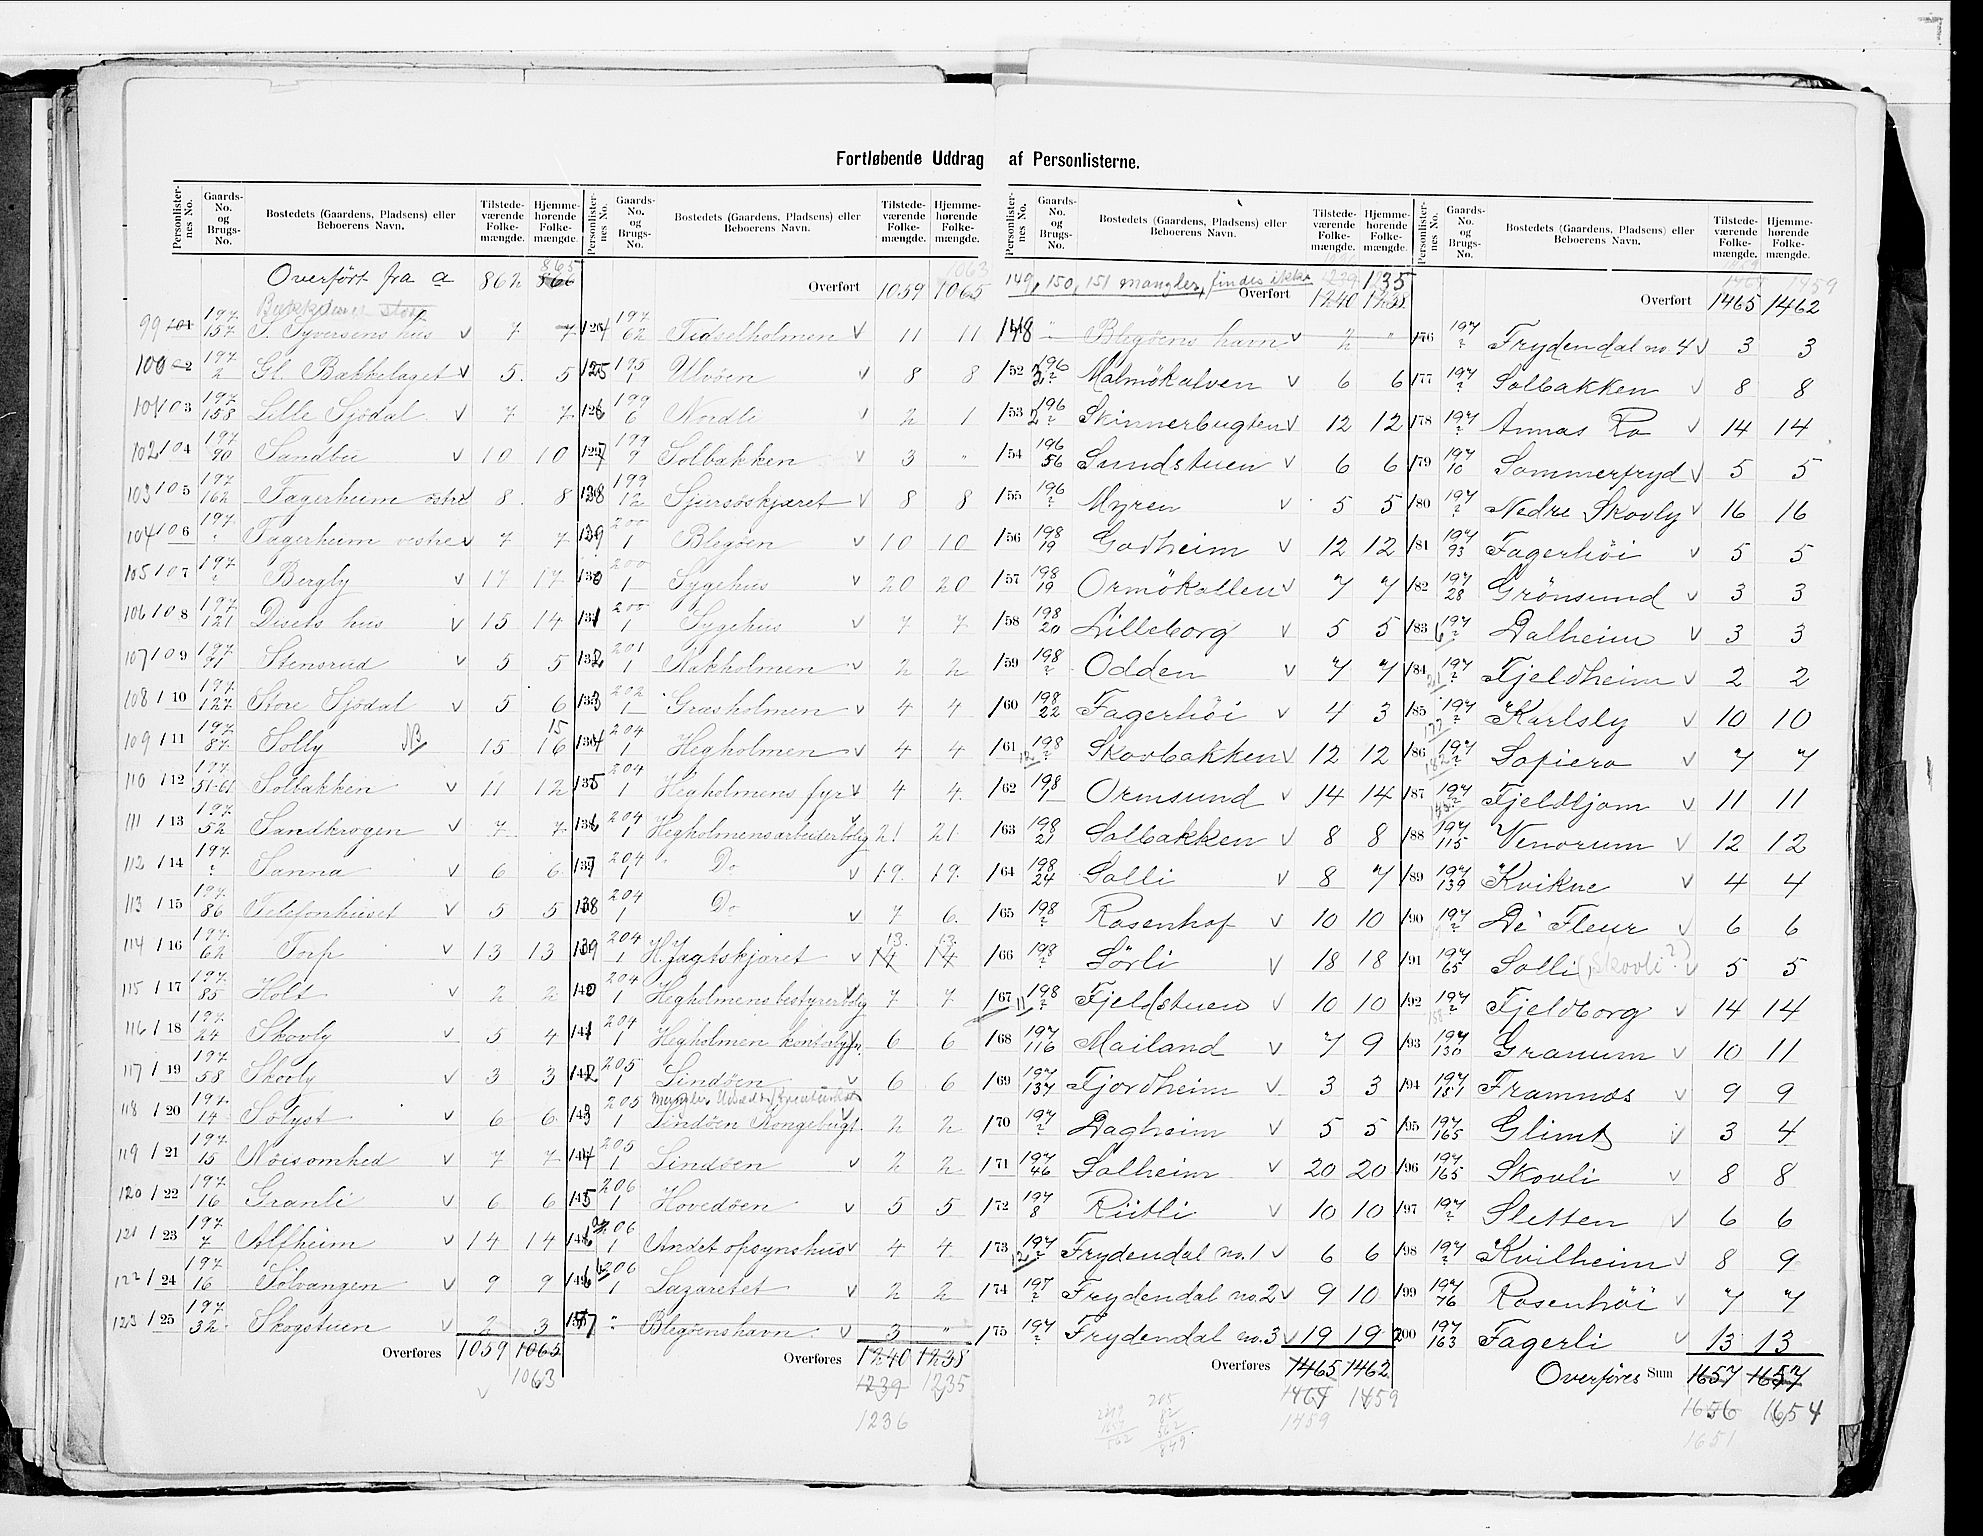 Fortløbende Uddrag af Personlisterne.
Personlister-nes No. | Gaards-No. og Brugs-No. | Bostedets (Gaardens, Pladsens) eller Beboerens Navn. | Tilstede-værende Folke-mængde. | Hjemme-hørende Folke-mængde.
Overført fra a 862 865 866
99 197 157 S. Syversens hus v 7 7
100 197 2 Gl. Bakkelaget v 5 5
101 103 197 158 Lille Sjödal v 7 7
102 104 197 90 Sandbu v 10 10
103 105 197 162 Fagerheim østre 8 8
104 106 197 ? Fagerheim vestre v 7 7
105 107 197 ? Bergly v 17 17
106 108 197 121 Disets hus v 15 14
107 109 197 71 Stensrud v 5 5
108 110 197 127 Store Sjödal v 5 6
109 111 197 87 Solly NB 15 15 16
110 112 197 51-61 Solbakken v 11 12
111 113 197 52 Sandkrogen v 7 7
112 114 197 ? Sanna v 6 6
113 115 197 86 Telefonhuset v 5 5
114 116 197 62 Torp v 13 13
115 117 197 85 Holt v 2 2
116 118 197 24 Skovly v 5 4
117 119 197 58 Skovly v 3 3
118 120 197 14 Solyst v 6 6
119 121 197 15 Nøisomhed v 7 7
120 122 197 16 Granli v 6 6
121 123 197 7 Alfheim v 14 14
122 124 197 16 Solvangen v 9 9
123 125 197 32 Skogstuen v 2 3
Overføres 1059 1065
1063
Personlister-nes No. | Gaards-No. og Brugs-No. | Bostedets (Gaardens, Pladsens) eller Beboerens Navn. | Tilstede-værende Folke-mængde. | Hjemme-hørende Folke-mængde.
1063
Overført 1059 1065
124 197 62 Tidselholmen v 11 11
125 195 1 Ulvøen v 8 8
126 199 6 Nordli v 2 1
127 199 9 Solbakken v 3 "
128 199 12 Sjursöskjæret v 8 8
129 200 1 Blegøen v 10 10
130 200 1 Sygehus v 20 20
131 200 1 Sygehus v 7 7
132 201 1 Nakholmen v 2 2
133 202 1 Græsholmen v 4 4
134 204 1 Hegholmen v 4 4
135 204 1 Hegholmens fyr v 4 4
136 204 1 Hegholmens arbeiderbolig 21 21
137 204 1 Do v 19 19
138 204 1 Do v 7 6
139 204 1 H. Jagtskjæret v 13 14 13 14
140 204 1 Hegholmens bestyrerbolig 7 7
141 204 1 Hegholmen kontorbygn. 6 6
142 205 1 Lindøen v 6 6
143 205 1 Lindøen Kongebugt 2 2
144 205 1 Lindøen v 2 2
145 206 1 Hovedøen v 5 5
146 a 206 1 Andet opsynshus v 4 4
146 b 206 1 Lazaretet v 2 2
147 " Blegøenshavn v 3 "
Overføres 1240 1238
1239 1235
1236
Personlister-nes No. | Gaards-No. og Brugs-No. | Bostedets (Gaardens, Pladsens) eller Beboerens Navn. | Tilstede-værende Folke-mængde. | Hjemme-hørende Folke-mængde.
149, 150, 151 mangler, findes ikke 1239 1235
Overført 1240 1238
148 " Blegøens havn v 2 "
152 196 2? Malmökalven v 6 6
153 196 2? Skinnerbugten v 12 12
154 196 56 Sundstuen v 6 6
155 196 ? Myren v 5 5
156 198 19 Godheim v 12 12
157 198 19 Ormökollen v 7 7
158 198 20 Lilleborg v 5 5
159 198 ? Odden v 7 7
160 198 22 Fagerhöi v 4 3
161 198 ? Skovbakken v 12 12
162 198 1 Ormsund v 14 14
163 198 21 Solbakken v 8 8
164 198 24 Solli v 8 7
165 198 ? Rosenhof v 10 10
166 198 ? Sörli v 18 18
167 11 198 ? Fjeldstuen v 10 10
168 197 116 Mailand v 7 9
169 197 137 Fjordheim v 3 3
170 197 ? Dagheim v 5 5
171 197 46 Solheim v 20 20
172 197 8 Rütli 10 10
173 197 ? Frydendal no. 1 v 6 6
174 197 ? Frydendal no. 2 v 9 10
175 197 ? Frydendal no. 3 v 19 19
Overføres 1465 1462
1464 1459
1459
Personlister-nes No. | Gaards-No. og Brugs-No. | Bostedets (Gaardens, Pladsens) eller Beboerens Navn. | Tilstede-værende Folke-mængde. | Hjemme-hørende Folke-mængde.
1459
Overført 1465 1462
176 197 ? Frydendal no. 4 v 3 3
177 197 ? Solbakken v 8 8
178 197 ? Annas Ro v 14 14
179 197 10 Sommerfryd v 5 5
180 197 ? Nedre Skovly v 16 16
181 197 93 Fagerhöi v 5 5
182 197 28 Grönsund v 3 3
183 197 ? Dalheim v 3 3
184 197 ? Fjeldheim v 2 2
185 197 ? Karlsby v 10 10
186 197 ? Sofiero v 7 7
187 197 ? Fjeldljom v 11 11
188 197 115 Venorum v 12 12
189 197 139 Kvikne v 4 4
190 197 ? De Fleur v 6 6
191 197 65 Solli (Skovli?) v 5 5
192 197 ? Fjeldborg v 14 14
193 197 130 Granum v 10 11
194 197 151 Framnæs v 9 9
195 197 165 Glimt v 3 4
196 197 165 Skovli v 8 8
197 197 ? Sletten v 6 6
198 197 ? Kvilheim v 8 9
199 197 76 Rosenhöi v 7 7
200 197 163 Fagerli v 13 13
Overføres Sum 1657 1657
1656 1654
1651